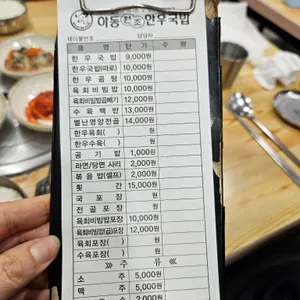 아동 한우국밥
테이블번호 담당자
품 명 단 가 수 량
한 우 국 밥 9,000원
한우국밥(따로) 10,000원
한 우 곰 탕 10,000원
육 회 비 빔 밥 10,000원
육회비빔밥곱빼기 12,000원
수 육 백 반 13,000원
별난영양전골 14,000원
한우육회( ) 원
한우수육( ) 원
공 기 밥 1,000원
라면/당면 사리 2,000원
볶 음 밥(셀프) 2,000원
횟 간 15,000원
국 포 장 원
전 골 포 장 원
육회비빔밥포장 10,000원
육회비빔밥(곱)포장 12,000원
육회포장( ) 원
수육포장( ) 원
주 류
소 주 5,000원
맥 주 5,000원
2,000원